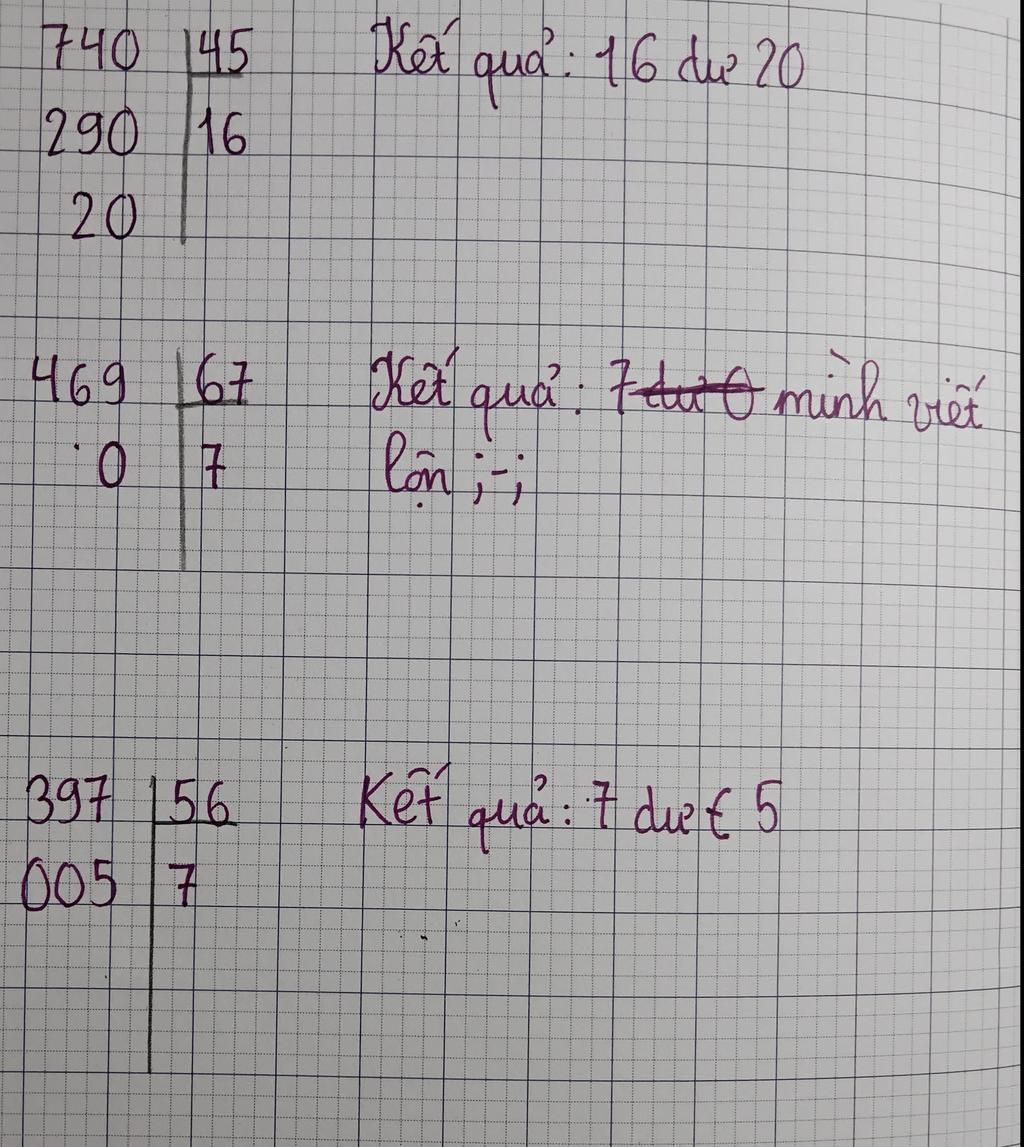 740 45 Kết quả: 16 dư 20
290 16
20
469 67 Kết quả: 7 dư 0 mình viết
0 7 lộn ;-;
397 56 Kết quả: 7 dư 5
005 7